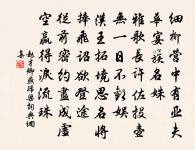 細柳營中有亞夫
華宴簇名姝
雅歌長許佐投壺
無一日不歡娛
漢王拓境思名將
捧飛詔欲登途
從前密約盡成虛
空贏得淚流珠
趙才卿燕歸梁詞典網
集